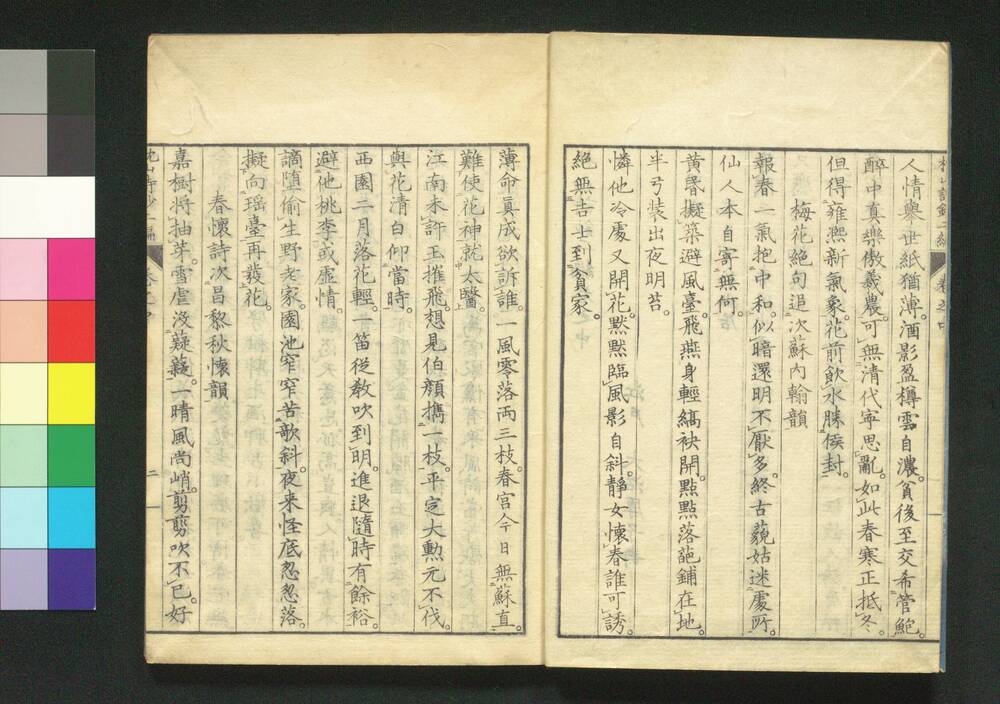 人情舉世紙猶薄。酒影盈樽雲自濃。貧後至交希管鮑。
醉中真樂傲羲農。可無清代寧思亂。如此春寒正抵冬。
但得雍熙新氣象。花前飲水勝侯封。
梅花絕句追次蘇內翰韻
報春一氣抱中和。似暗還明不厭多。終古藐姑迷處所。
仙人本自寄無何。
黃昏擬築避風臺。飛燕身輕縞袂開。點點落葩鋪在地。
半弓裝出夜明苔。
憐他冷處又開花。默默臨風影自斜。靜女懷春誰可誘。
絕無吉士到貧家。
薄命眞成欲訴誰。一風零落兩三枝。春宮今日無蘇直。
難使花神就太醫。
江南未許玉摧飛。想見伯顏攜一枝。平定大勳元不伐。
與花清白仰當時。
西園二月落花輕。一笛從敎吹到明。進退隨時有餘裕。
避他桃李或虛情。
謫墮偷生野老家。園池窄窄苦欹斜。夜來怪底忽忽落。
擬向瑤臺再發花。
春懷詩次昌黎秋懷韻
嘉樹將抽芽。雪虐沒薿薿。一晴風尚峭。剪剪吹不已。好